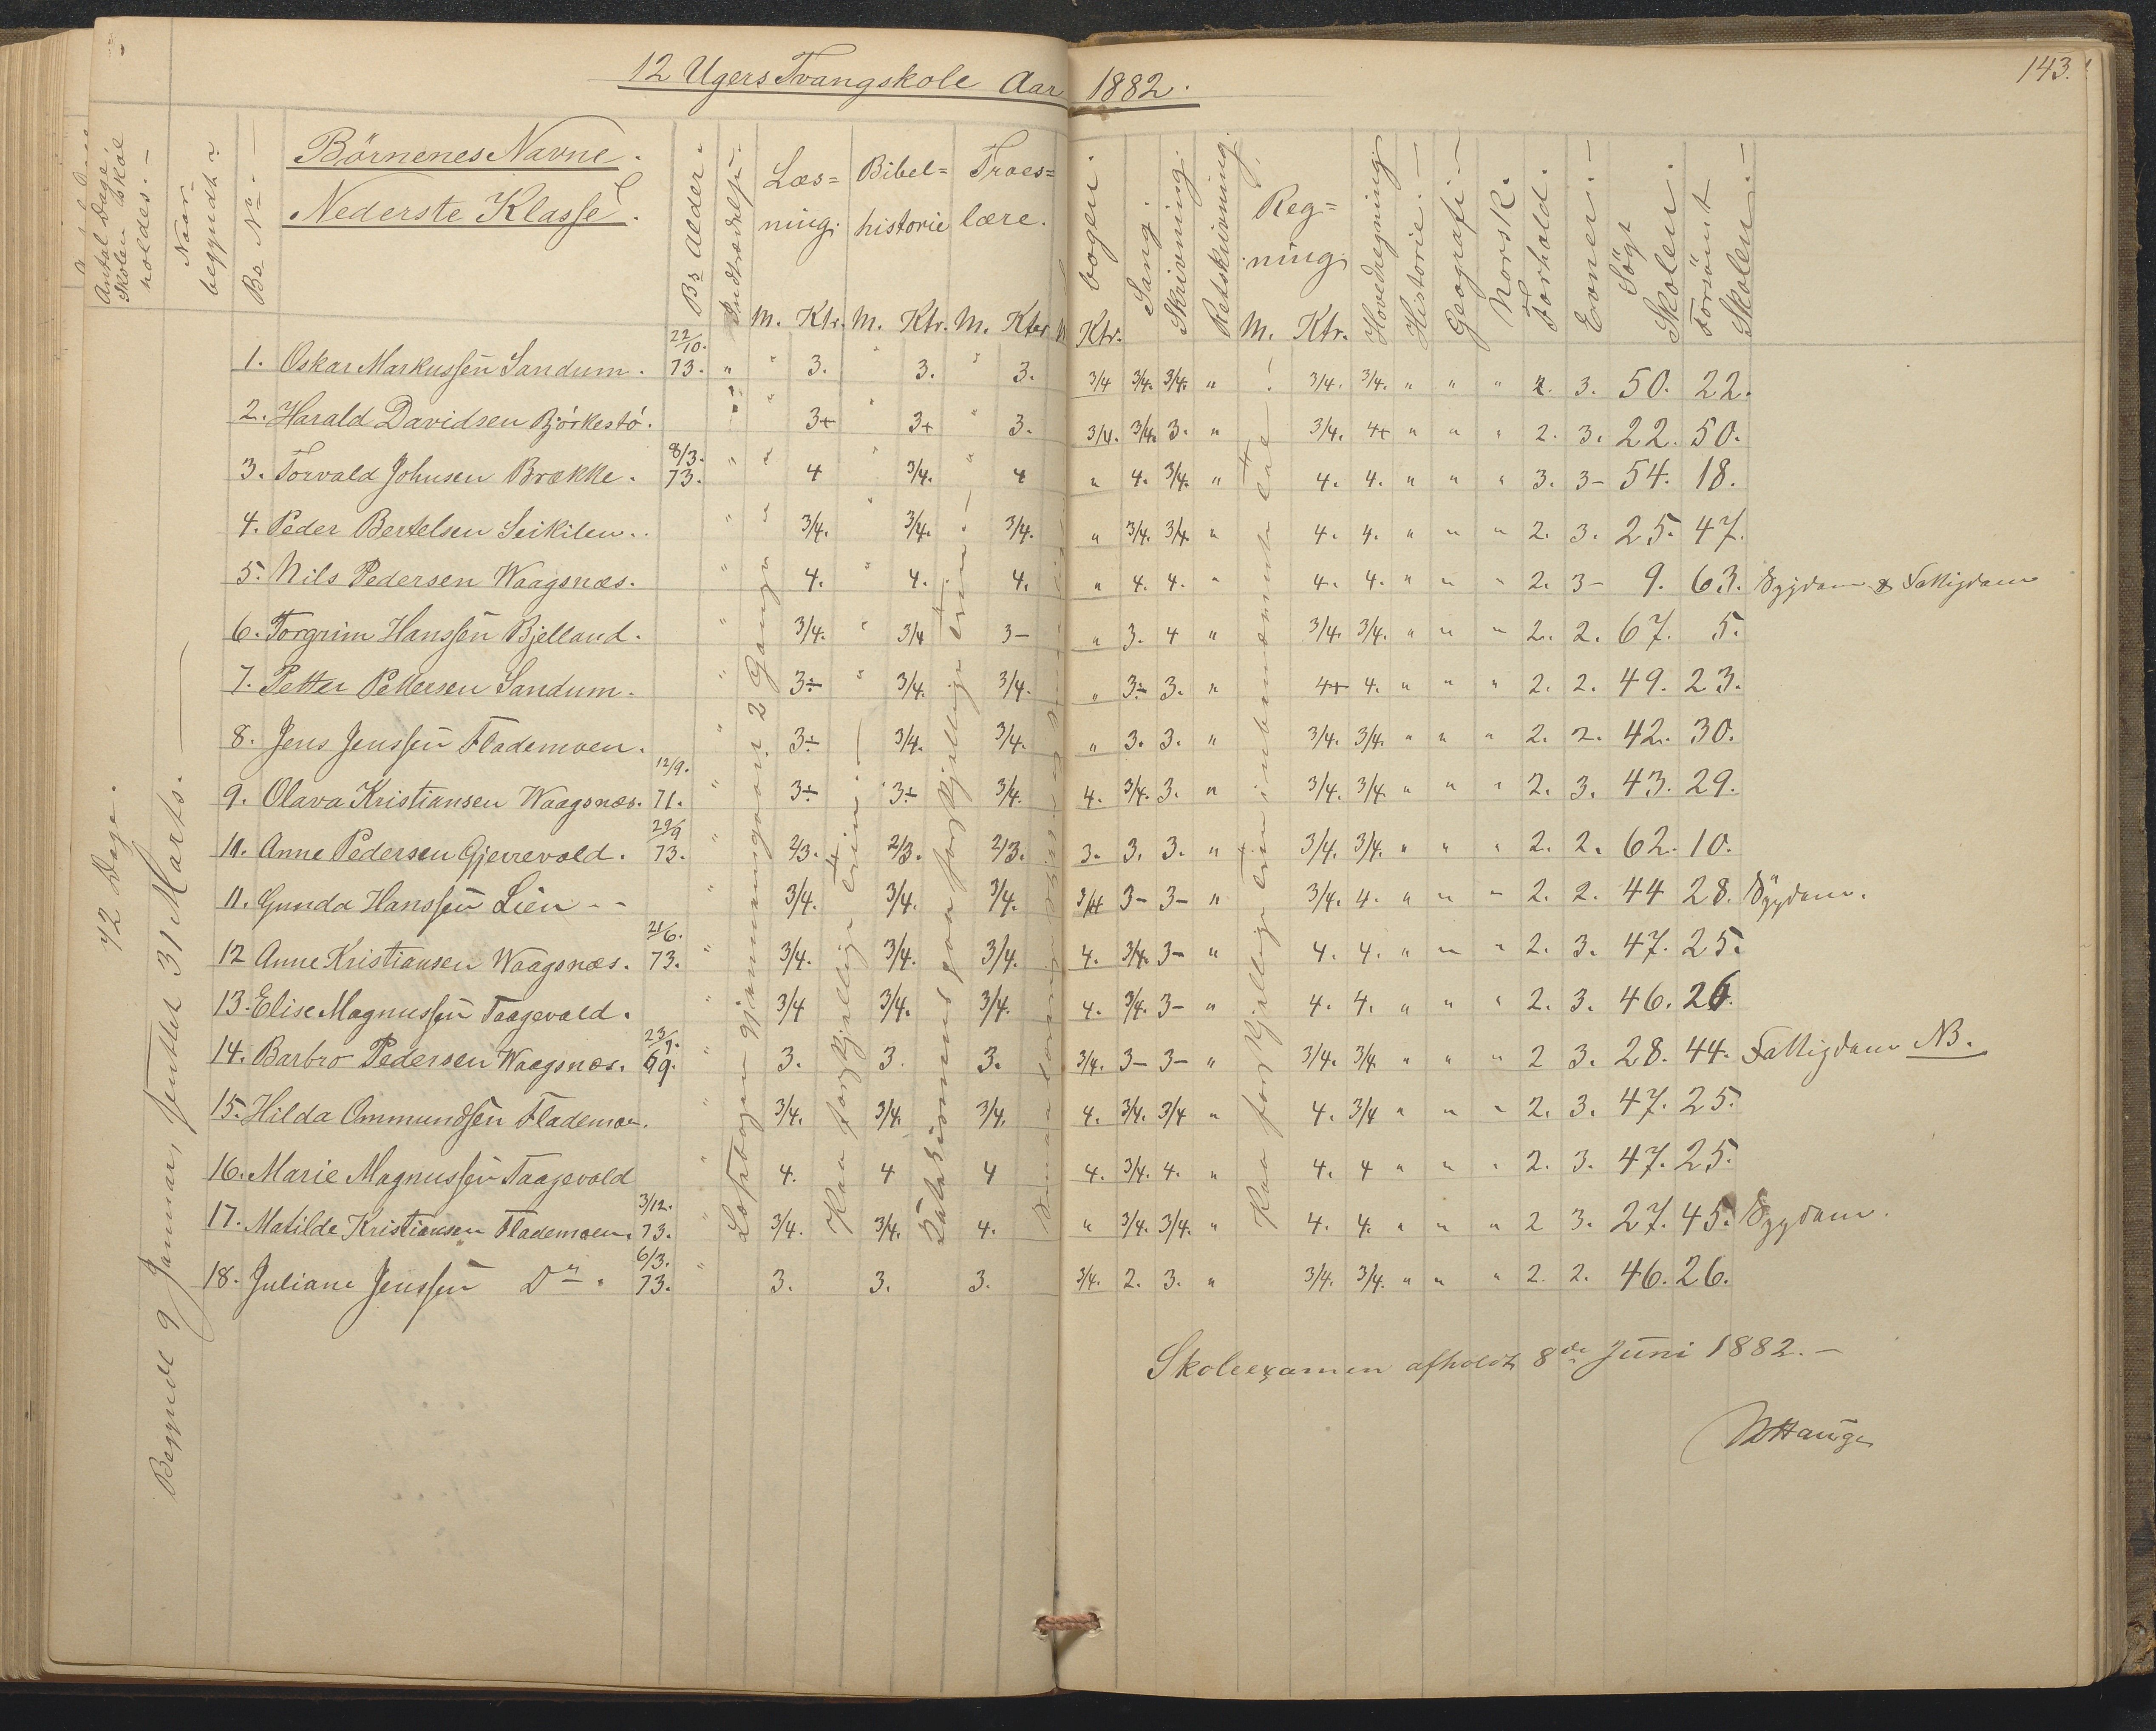 12 Ugers Tvangskole Aar 1882.
143.
Antal Dage Skolen skal holdes.
Naar begyndt
Bs No
Börnenes Navne.
Nederste Klasse.
Bs Alder.
Indtrædelse.
Læs=ning. M. Ktr.
Bibel=historie M. Ktr.
Troes=lære. M. Ktr.
bogen. Ktr.
Sang.
Skrivning.
Retskrivning.
Reg=ning M. Ktr.
Hovedregning
Historie.
Geografi
Norsk.
Forhold.
Evner.
Søgt Skolen.
Forsömt Skolen.
72 Dage.
Begyndt 9 Januar, sluttet 31 Marts.
1. Oskar Markussen Sandum. 22/10. 73. " " 3. " 3. " 3. 3/4 3/4. 3/4. " 3/4. 3/4. " " " 2. 3. 50. 22.
2. Harald Davidsen Björkestö. " " 3+ " 3+ " 3. 3/4. 3/4. 3. " 3/4. 4+ " " " 2. 3. 22. 50.
3. Torvald Johnsen Brække. 8/3. 73. " " 4 " 3/4. " 4 " 4. 3/4. " 4. 4. " " " 3. 3- 54. 18.
4. Peder Bertelsen Seikilen.. " " 3/4. " 3/4. 3/4. " 3/4. 3/4. " 4. 4. " " " 2. 3. 25. 47.
5. Nils Pedersen Waagsnæs. " 4. " 4. 4. " 4. 4. " 4. 4. " " " 2. 3- 9. 63. Sygdom & Fattigdom
6. Torgrim Hanssen Bjelland. " 3/4. " 3/4 3- " 3. 4 " 3/4. 3/4. " " " 2. 2. 67. 5.
7. Petter Pettersen Sandum. " 3÷ " 3/4. 3/4. " 3÷ 3. " 4+ 4. " " " 2. 2. 49. 23.
8. Jens Jenssen Flademoen. " 3÷ 3/4. 3/4. " 3. 3. " 3/4. 3/4. " " " 2. 2. 42. 30.
9. Olava Kristiansen Waagsnæs. 12/9. 71. " 3÷ 3÷ 3/4. 4. 3/4. 3. " 3/4. 3/4. " " " 2. 3. 43. 29.
10. Anne Pedersen Gjerrevold. 29/9 73. " 2/3. 2/3. 2/3. 3. 3. 3. " 3/4. 3/4. " " " 2. 2. 62. 10.
11. Gunda Hanssen Lien - - " 3/4. 3/4. 3/4. 3/4 3- 3- " 3/4. 4. " " " 2. 2. 44 28. Sygdom.
12 Anne Kristiansen Waagsnæs. 21/6. 73. " 3/4. 3/4. 3/4. 4. 3/4. 3- " 4. 4. " " " 2. 3. 47. 25.
13. Elise Magnussen Taagevold. " 3/4 3/4. 3/4. 4. 3/4. 3- " 4. 4. " " " 2. 3. 46. 26.
14. Barbro Pedersen Waagsnæs. 23/9. 69. " 3. 3. 3. 3/4. 3- 3- " 3/4. 3/4 " " " 2 3. 28. 44. Fattigdom NB.
15. Hilda Ommundsen Flademoen. " 3/4. 3/4. 3/4. 4. 3/4. 3/4 " 4. 3/4 " " " 2. 3. 47. 25.
16. Marie Magnussen Taagevold " 4. 4 4 4. 3/4. 4. " 4. 4 " " " 2. 3. 47. 25.
17. Matilde Kristiansen Flademoen. 3/12. 73. " 3/4. 3/4. 4. " 3/4. 3/4. " 4. 4. " " " 2 3. 27. 45. Sygdom.
18. Juliane Jenssen Do. 6/3. 73. " 3. 3. 3. 3/4. 2. 3. " 3/4. 3/4. " " " 2. 2. 46. 26.
Læsebogen gjennemgaaet 2 Gange
Kan forskjellige Trin.
forskjellige Trin.
Kan forskjellige Trin
Skoleexamen afholdt 8de Juni 1882.
Hauge